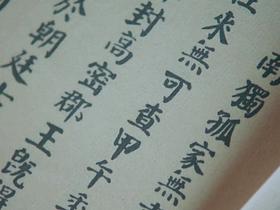 南獨孤家無
往來無可查甲午
封高密郡王既
於朝廷